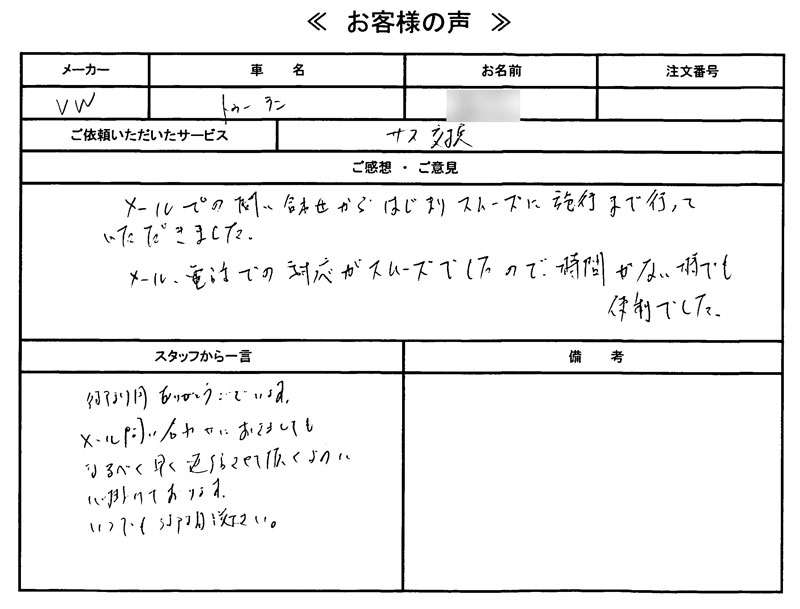 ≪ お客様の声 ≫
メーカー 車 名 お名前 注文番号
VW トゥーラン
ご依頼いただいたサービス サス交換
ご感想 ・ ご意見
メールでの問い合わせからはじまりスムーズに施行まで行って
いただきました。
メール、電話での対応がスムーズでしたので、時間がない時でも
便利でした。
スタッフから一言 備 考
ありがとうございます。
メール問い合わせにおきましても
なるべく早く返信させて頂くように
心掛けております。
いつでも 下さい。